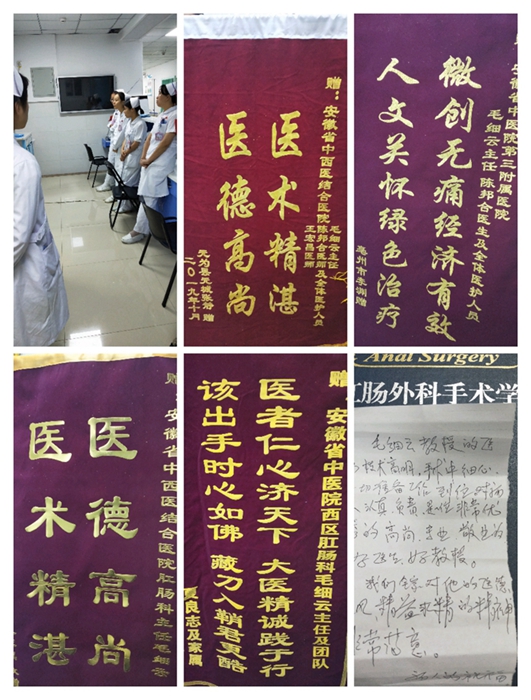 赠：安徽省中西医结合医院毛细云主任
陈邦合医师及全体医护人员
王宏昌医师
医术精湛
医德高尚
二〇一九年十月
赠：安徽省中医院第三附属医院
毛细云主任 陈邦合医生及全体医护人员
微创无痛经济有效
人文关怀绿色治疗
亳州市李渊赠
赠：安徽省中西医结合医院肛肠科主任毛细云
医德高尚
医术精湛
赠 安徽省中医院西区肛肠科毛细云主任及团队
医者仁心济天下 大医精诚践于行
该出手时心如佛 藏刀入鞘君更酷
夏良志及家属
Anal Surgery
肛肠外科手术学
毛细云教授的医
技术高明，手术中细心，
准备工作到位，对病
认真负责，医性非常优
的高尚
好医生，好教授。
我们全家对他的医德
风，精益求精的精神
非常满意。